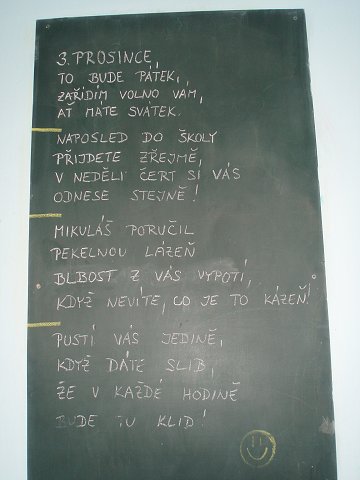 3. PROSINCE,
TO BUDE PÁTEK,
ZAŘÍDÍM VOLNO VÁM,
AŤ MÁTE SVÁTEK.
NAPOSLED DO ŠKOLY
PŘIJDETE ZŘEJMĚ,
V NEDĚLI ČERT SI VÁS
ODNESE STEJNĚ!
MIKULÁŠ PORUČIL
PEKELNOU LÁZEŇ
BLBOST Z VÁS VYPOTÍ,
KDYŽ NEVÍTE, CO JE TO KÁZEŇ!
PUSTÍ VÁS JEDINĚ,
KDYŽ DÁTE SLIB,
ŽE V KAŽDÉ HODINĚ
BUDE TU KLID!